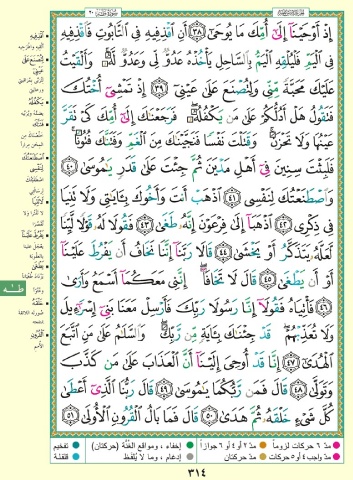 إِذْ أَوْحَيْنَآ إِلَىٰٓ أُمِّكَ مَا يُوحَىٰٓ ٣٨ أَنِ ٱقْذِفِيهِ فِى ٱلتَّابُوتِ فَٱقْذِفِيهِ
فِى ٱلْيَمِّ فَلْيُلْقِهِ ٱلْيَمُّ بِٱلسَّاحِلِ يَأْخُذْهُ عَدُوٌّ لِّى وَعَدُوٌّ لَّهُۥ ۚ وَأَلْقَيْتُ
عَلَيْكَ مَحَبَّةً مِّنِّى وَلِتُصْنَعَ عَلَىٰ عَيْنِىٓ ٣٩ إِذْ تَمْشِىٓ أُخْتُكَ
فَتَقُولُ هَلْ أَدُلُّكُمْ عَلَىٰ مَن يَكْفُلُهُۥ ۖ فَرَجَعْنَٰكَ إِلَىٰٓ أُمِّكَ كَىْ تَقَرَّ
عَيْنُهَا وَلَا تَحْزَنَ ۚ وَقَتَلْتَ نَفْسًا فَنَجَّيْنَٰكَ مِنَ ٱلْغَمِّ وَفَتَنَّٰكَ فُتُونًا ۚ
فَلَبِثْتَ سِنِينَ فِىٓ أَهْلِ مَدْيَنَ ثُمَّ جِئْتَ عَلَىٰ قَدَرٍ يَٰمُوسَىٰ ٤٠
وَٱصْطَنَعْتُكَ لِنَفْسِى ٤١ ٱذْهَبْ أَنتَ وَأَخُوكَ بِـَٔايَٰتِى وَلَا تَنِيَا
فِى ذِكْرِى ٤٢ ٱذْهَبَآ إِلَىٰ فِرْعَوْنَ إِنَّهُۥ طَغَىٰ ٤٣ فَقُولَا لَهُۥ قَوْلًا لَّيِّنًا
لَّعَلَّهُۥ يَتَذَكَّرُ أَوْ يَخْشَىٰ ٤٤ قَالَا رَبَّنَآ إِنَّنَا نَخَافُ أَن يَفْرُطَ عَلَيْنَآ
أَوْ أَن يَطْغَىٰ ٤٥ قَالَ لَا تَخَافَآ ۖ إِنَّنِى مَعَكُمَآ أَسْمَعُ وَأَرَىٰ
٤٦ فَأْتِيَاهُ فَقُولَآ إِنَّا رَسُولَا رَبِّكَ فَأَرْسِلْ مَعَنَا بَنِىٓ إِسْرَٰٓءِيلَ
وَلَا تُعَذِّبْهُمْ ۖ قَدْ جِئْنَٰكَ بِـَٔايَةٍ مِّن رَّبِّكَ ۖ وَٱلسَّلَٰمُ عَلَىٰ مَنِ ٱتَّبَعَ
ٱلْهُدَىٰٓ ٤٧ إِنَّا قَدْ أُوحِىَ إِلَيْنَآ أَنَّ ٱلْعَذَابَ عَلَىٰ مَن كَذَّبَ
وَتَوَلَّىٰ ٤٨ قَالَ فَمَن رَّبُّكُمَا يَٰمُوسَىٰ ٤٩ قَالَ رَبُّنَا ٱلَّذِىٓ أَعْطَىٰ
كُلَّ شَىْءٍ خَلْقَهُۥ ثُمَّ هَدَىٰ ٥٠ قَالَ فَمَا بَالُ ٱلْقُرُونِ ٱلْأُولَىٰ ٥١
مدّ ٦ حركات لزوماً مدّ ٢ أو ٤ أو ٦ جوازاً إخفاء، ومواقع الغُنَّة (حركتان) تفخيم
مدّ واجب ٤ أو ٥ حركات مدّ حركتان إدغام، وما لا يُلفَظ قلقلة
٣١٤